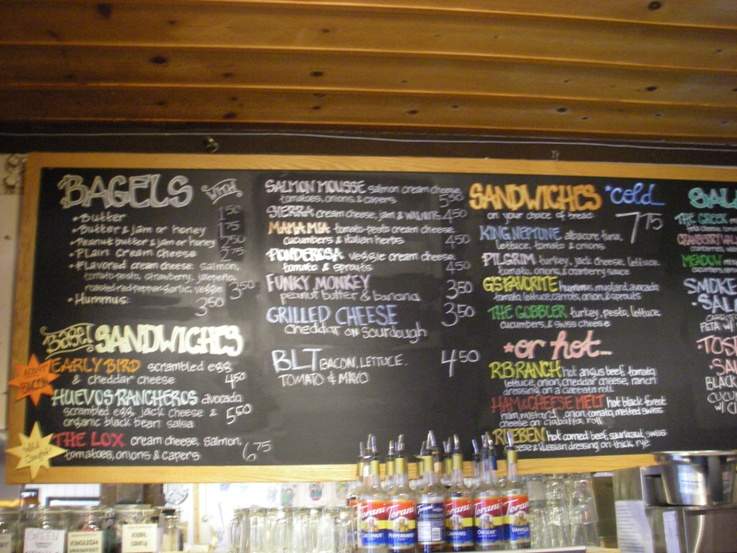 BAGELS
with
• Butter 1.50
• Butter & jam or honey 1.75
• Peanut butter & jam or honey 2.50
• Plain cream cheese 2.75
• Flavored cream cheese: salmon,
tomato-pesto, strawberry, jalapeño,
roasted red pepper garlic, veggie 3.50
• Hummus 3.50
Bagel SANDWICHES
EARLY BIRD scrambled egg
& cheddar cheese 4.50
HUEVOS RANCHEROS avocado
scrambled egg, jack cheese &
organic black bean salsa 5.50
THE LOX cream cheese, salmon,
tomatoes, onions & capers 6.75
SALMON MOUSSE salmon cream cheese
tomatoes, onions, & capers 5.50
SIERRA cream cheese, jam & walnuts 4.50
MAMA MIA tomato-pesto cream cheese
cucumbers & italian herbs 4.50
PONDEROSA veggie cream cheese
tomato & sprouts 4.50
FUNKY MONKEY
peanut butter & banana 3.50
GRILLED CHEESE 3.50
cheddar on sourdough
BLT BACON, LETTUCE, 4.50
TOMATO & MAYO
SANDWICHES *cold
on your choice of bread 7.75
KING NEPTUNE albacore tuna,
lettuce, tomato & onions
PILGRIM turkey, jack cheese, lettuce
tomato, onions, & cranberry sauce
G'S FAVORITE hummus, mustard, avocado
tomato, lettuce, carrots, onion, & sprouts
THE GOBBLER turkey, pesto, lettuce
cucumbers, & swiss cheese
*or hot...
RB RANCH hot angus beef, tomato,
lettuce, onion, cheddar cheese, ranch
dressing on a ciabatta roll
HAM & CHEESE MELT hot black forest
ham, mustard, onion, tomato, melted swiss
cheese on ciabatta roll
RUEBEN hot corned beef, sauerkraut, swiss
cheese & russian dressing on thick rye
THE GREEK
MEADOW
SMOKE
Torani
Torani
Torani
Torani
Torani
ENGLISH